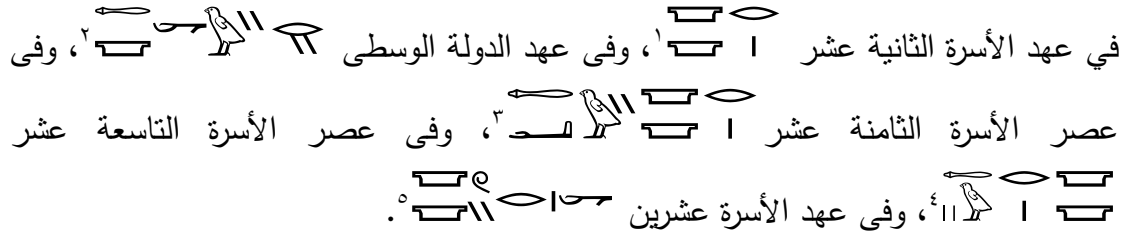 في عهد الأسرة الثانية عشر ١، وفى عهد الدولة الوسطى ٢، وفى
عصر الأسرة الثامنة عشر ٣، وفى عصر الأسرة التاسعة عشر
٤، وفى عهد الأسرة عشرين ٥.